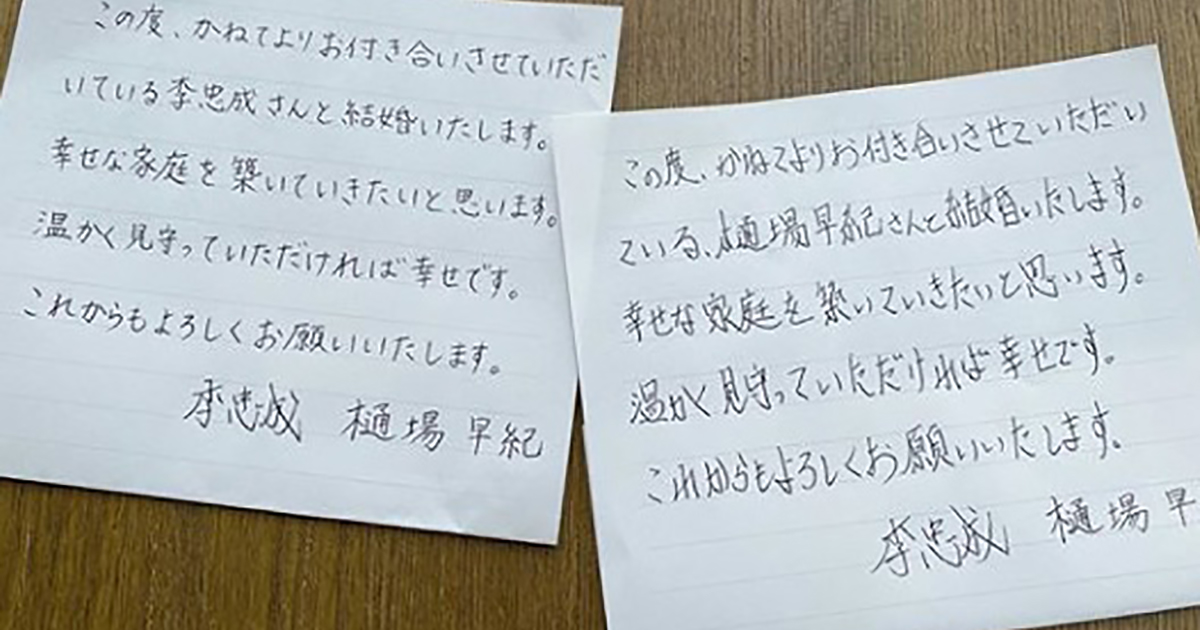 この度、かねてよりお付き合いさせていただ
いている李忠成さんと結婚いたします。
幸せな家庭を築いていきたいと思います。
温かく見守っていただければ幸せです。
これからもよろしくお願いいたします。
李忠成 樋場早紀
この度、かねてよりお付き合いさせていただい
ている、樋場早紀さんと結婚いたします。
幸せな家庭を築いていきたいと思います。
温かく見守っていただければ幸せです。
これからもよろしくお願いいたします。
李忠成 樋場早